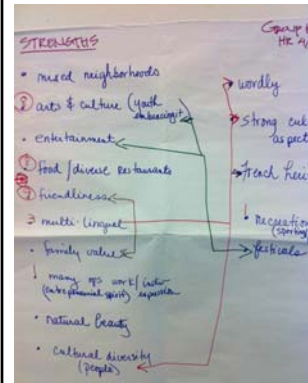 STRENGTHS
Group
HR 4/
• mixed neighborhoods
8 arts & culture (youth
embracing it
• entertainment
food / diverse restaurants
friendliness
3 multi-lingual
• family values
1 many ops work/
(entrepreneurial spirit) expression
• natural beauty
• cultural diversity
(people)
wordly
strong cul
aspect
French heri
1
• Recreation
(sporting)
festivals